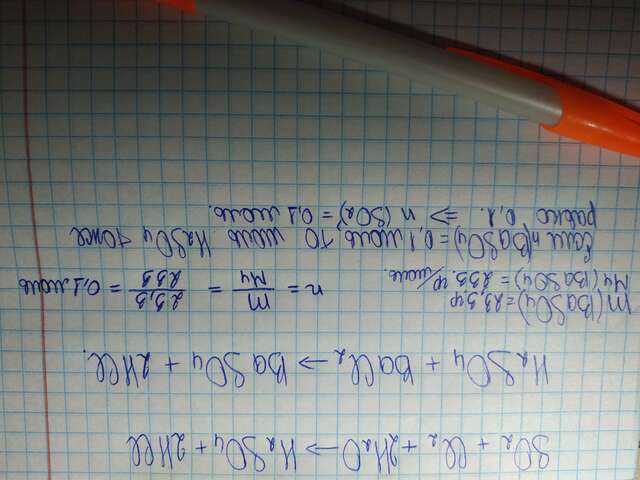 SO₂ + Cl₂ + 2H₂O → H₂SO₄ + 2HCl
H₂SO₄ + BaCl₂ → BaSO₄ + 2HCl.
m(BaSO₄) = 23,3 гр
Mч(BaSO₄) = 233. гр/моль.
n = m/Mч = 23,3/233 = 0,1 моль
Если n(BaSO₄) = 0,1 моль, то моль H₂SO₄ тоже
равно 0,1. ⇒ n(SO₂) = 0,1 моль.